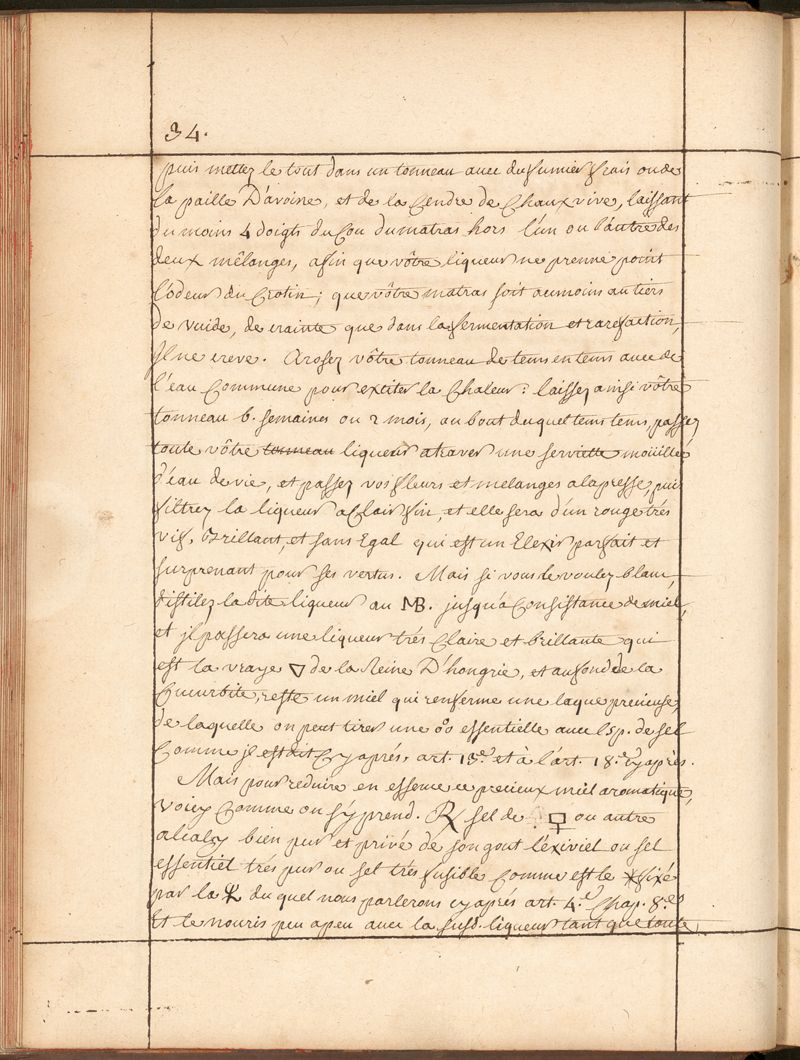 34.
puis mettez le tout dans un tonneau avec du fumier frais ou de
la paille D'avoine, et de la Cendre de Chaux vive, laissant
du moins 4 doigts du Cou du matras hors l'un ou l'autre des
deux mêlanges, afin que vôtre liqueur ne prenne point
l'odeur du Crotin; que vôtre matras soit au moins au tiers
de vuide, de crainte que dans la fermentation et rarefaction,
Jl ne creve. Arosez vôtre tonneau de tems en tems avec de
l'eau Commune pour exciter la Chaleur: laissez ainsi vôtre
tonneau 6. semaines ou 2 mois, au bout duquel tems tems, passez
toute vôtre tonneau liqueur a traver une serviette moüillée
d'eau de vie, et passez vos fleurs et mêlanges a la presse, puis
filtrez la liqueur a Clair fin, et elle sera d'un rouge trés
vif, Brillant, et sans Egal qui est un Elexir parfait et
surprenant pour ses vertus. Mais si vous le voulez blanc,
distilez la dite liqueur au MB. jusqu'a Consistance de miel,
et jl passera une liqueur trés Claire et brillante qui
est la vraye 🜄 de la Reine D'hongrie, et au fond de la
Cucurbite, reste un miel qui renferme une laque precieuse,
de laquelle on peut tirer une o°o essentielle avec l'sp. de sel
Comme jl est dit Cy aprés, art. 13.e et à l'art. 18.e Cy aprés.
Mais pour reduire en essence ce precieux miel aromatique,
Voicy Comme on s'y prend. ℞ sel de 🜿 ou autre
alcaly bien pur et privé de son gout lexiviel ou sel
essentiel trés pur ou sel trés fusible Comme est le ✶ fixé
par la 🜍 du quel nous parlerons cy aprés art. 4.e Chap. 8.es
Et le nouris peu a peu avec la susd. liqueur tant que toute